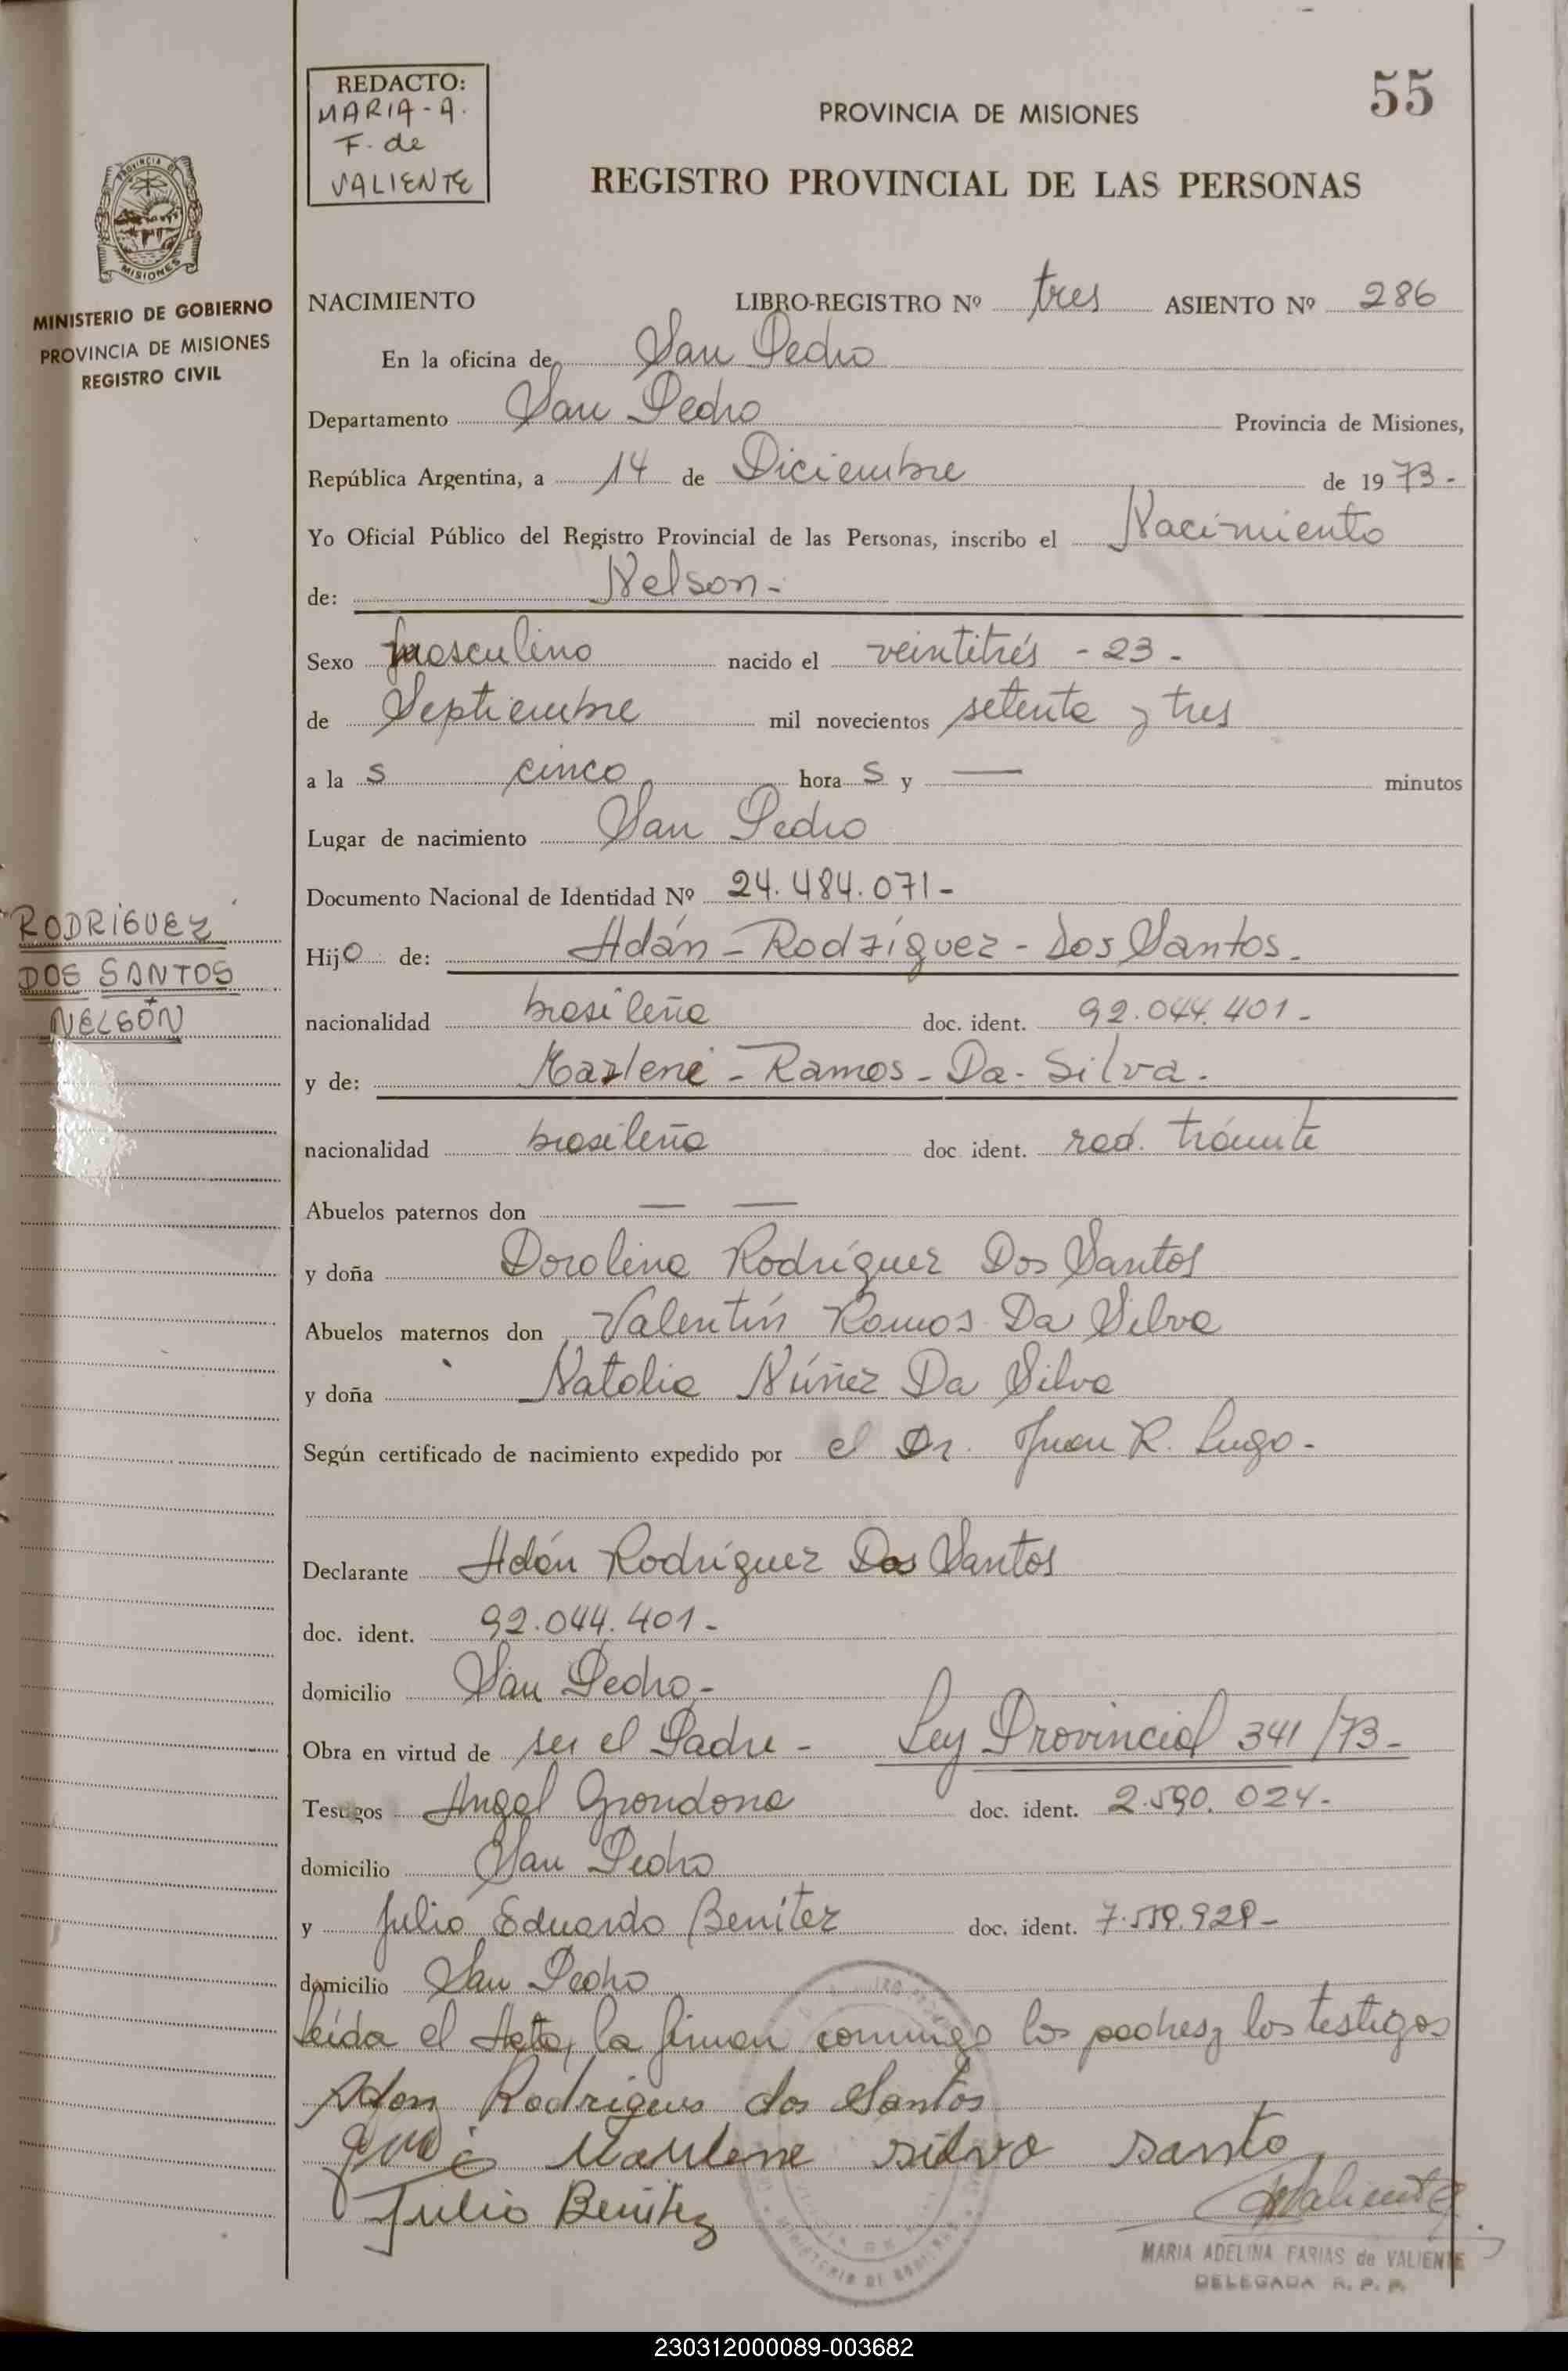 REDACTO:
MARIA-A.
F. de
VALIENTE
55
PROVINCIA DE MISIONES
REGISTRO PROVINCIAL DE LAS PERSONAS
PROVINCIA DE
MISIONES
MINISTERIO DE GOBIERNO
PROVINCIA DE MISIONES
REGISTRO CIVIL
NACIMIENTO LIBRO-REGISTRO Nº tres ASIENTO Nº 286
En la oficina de San Pedro
Departamento San Pedro Provincia de Misiones,
República Argentina, a 14 de Diciembre de 1973-
Yo Oficial Público del Registro Provincial de las Personas, inscribo el Nacimiento
de: Nelson-
Sexo masculino nacido el veintitrés - 23 -
de Septiembre mil novecientos setenta y tres
a la s cinco hora s y — minutos
Lugar de nacimiento San Pedro
Documento Nacional de Identidad Nº 24.484.071-
RODRÍGUEZ
DOS SANTOS
NELSON
Hijo de: Adán - Rodríguez - Dos Santos.
nacionalidad brasileña doc. ident. 92.044.401-
y de: Marlene - Ramos - Da - Silva.
nacionalidad brasileña doc. ident. rad. trámite
Abuelos paternos don — —
y doña Dorolina Rodríguez Dos Santos
Abuelos maternos don Valentín Ramos Da Silva
y doña Natalia Núñez Da Silva
Según certificado de nacimiento expedido por el Dr. Juan R. Lugo-
Declarante Adán Rodríguez Dos Santos
doc. ident. 92.044.401-
domicilio San Pedro-
Obra en virtud de ser el Padre - Ley Provincial 341/73-
Testigos Angel Grondona doc. ident. 2.590.024-
domicilio San Pedro
y Julio Eduardo Benítez doc. ident.
domicilio San Pedro
Leída el Acta, la firman conmigo los padres y los testigos
Adon Rodrigues dos Santos
Marlene silva santo
Julio Benitez
Valiente
MARIA ADELINA FARIAS de VALIENTE
DELEGADA R. P. P.
230312000089-003682